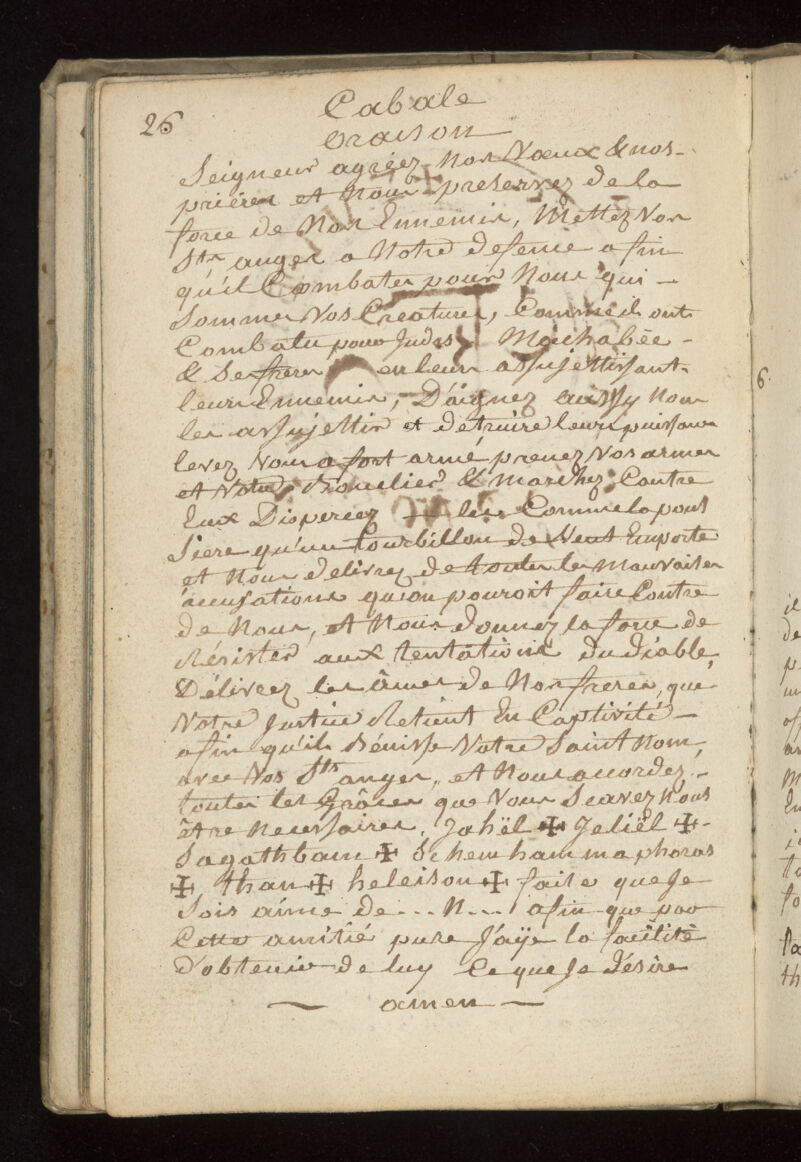 26
Cabale
Oraison
Seigneur agréez Nos Vœux & nos-
prières et Nous preservez de la
force de Nos Ennemis, Mettez Vos
Sts anges a Notre defense afin
qu'il Combates pour Nous qui -
Sommes Vos Creatures, Comme il ont
Combatu pour Judas Machabée -
& Ses freres en leurs assujettissant.
leurs Ennemis, Daignez aussy Nous
les assujettir et détruire leurs puissances
levez Vous a fort armé prenez Vos armes
et Votre Bouclier & marchez Contre
Eux Disperéez les Comme la pous
Siere qu'un tourbillon de Vent Emporte
et Nous delivrez de toutes les mauvaises
accusations qu'on pouroit faire Contre
de Nous, et Nous donnez la force de
Résister aux tentations du diable,
Délivrez les âmes de Nos freres, que
Votre Justice Retient En Captivité -
afin qu'ils Bénisse Votre Saint Nom,
avec Vos Sts anges, et Nous accordez -
toutes les Grâces que Vous Scavez Nous
être necessaires, Jahël ✠ Jeliël ✠ -
Sagathbam ✠ Schemhammaphoras
✠, than ✠ heleison ✠ faite que Je
Sois aime de ... N ... afin que par
Cette amitié pure J'aÿe la facilité
d'obtenir de luy Ce que Je Désire
amen
6.
il
de